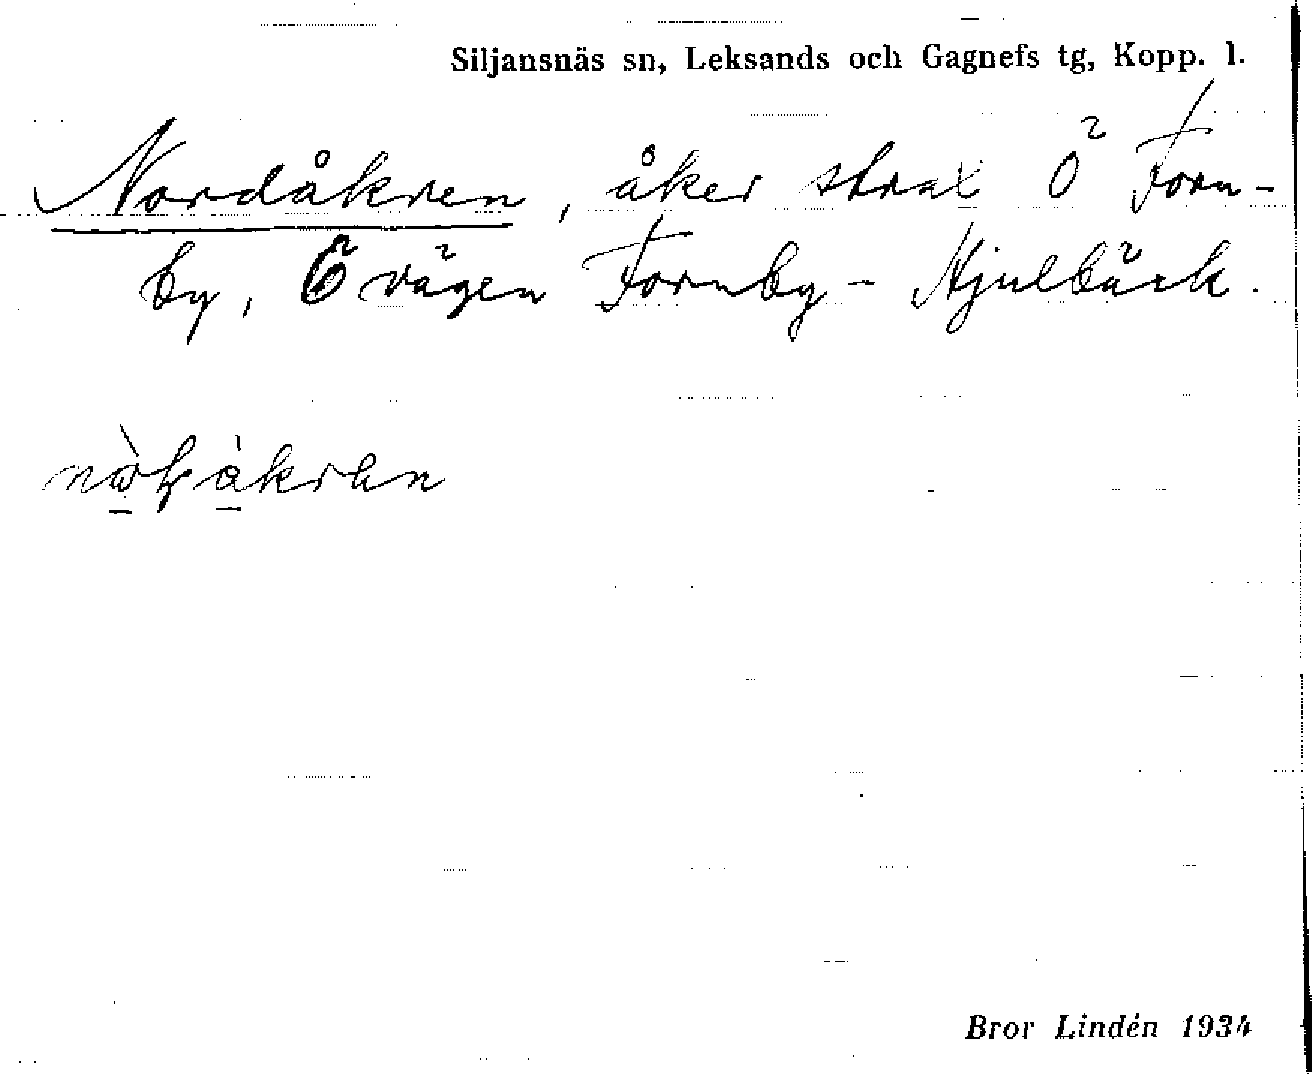 Siljansnäs sn, Leksands och Gagnefs tg, Kopp. l.
Nordåkren, åker strax Ö Forn-
by, Ö vägen Fornby - Hjulbäck.
Bror Lindén 1934